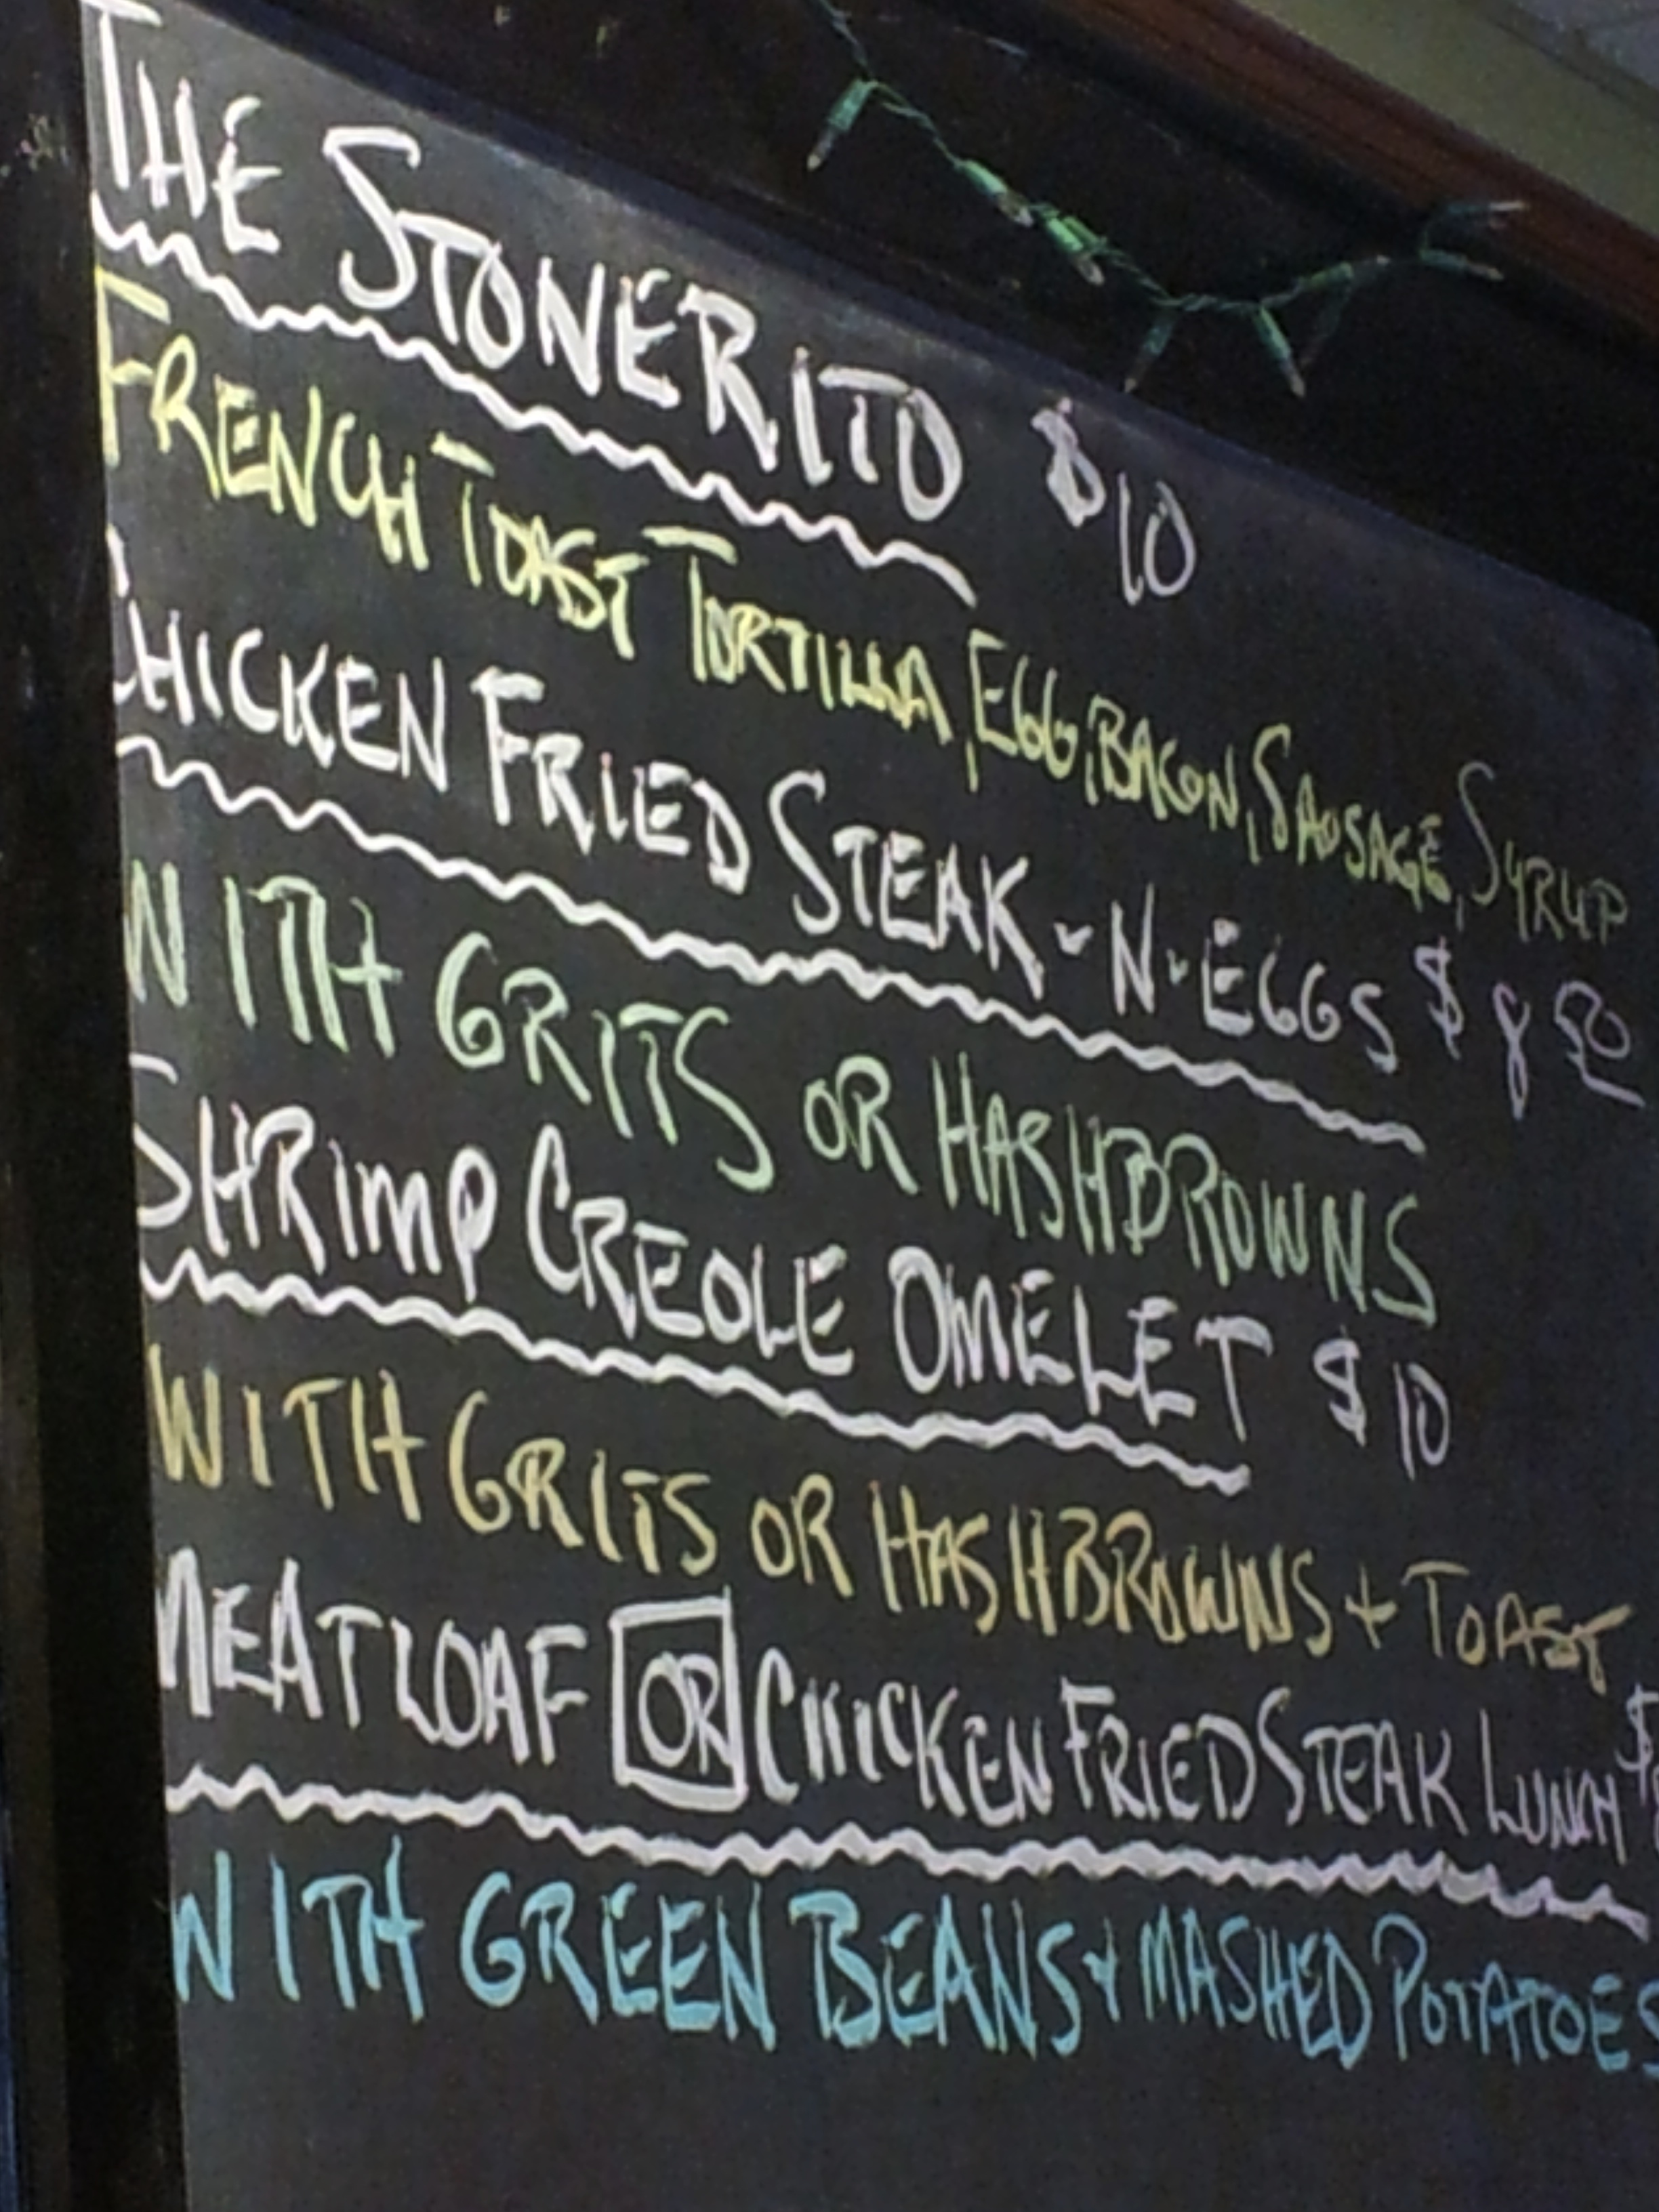 THE STONERITO $10
FRENCH TOAST TORTILLA, EGG, BACON, SAUSAGE, SYRUP
CHICKEN FRIED STEAK-N-EGGS $8 50
WITH GRITS OR HASHBROWNS
SHRIMP CREOLE OMELET $10
WITH GRITS OR HASHBROWNS + TOAST
MEATLOAF OR CHICKEN FRIED STEAK LUNCH $
WITH GREEN BEANS + MASHED POTATOES